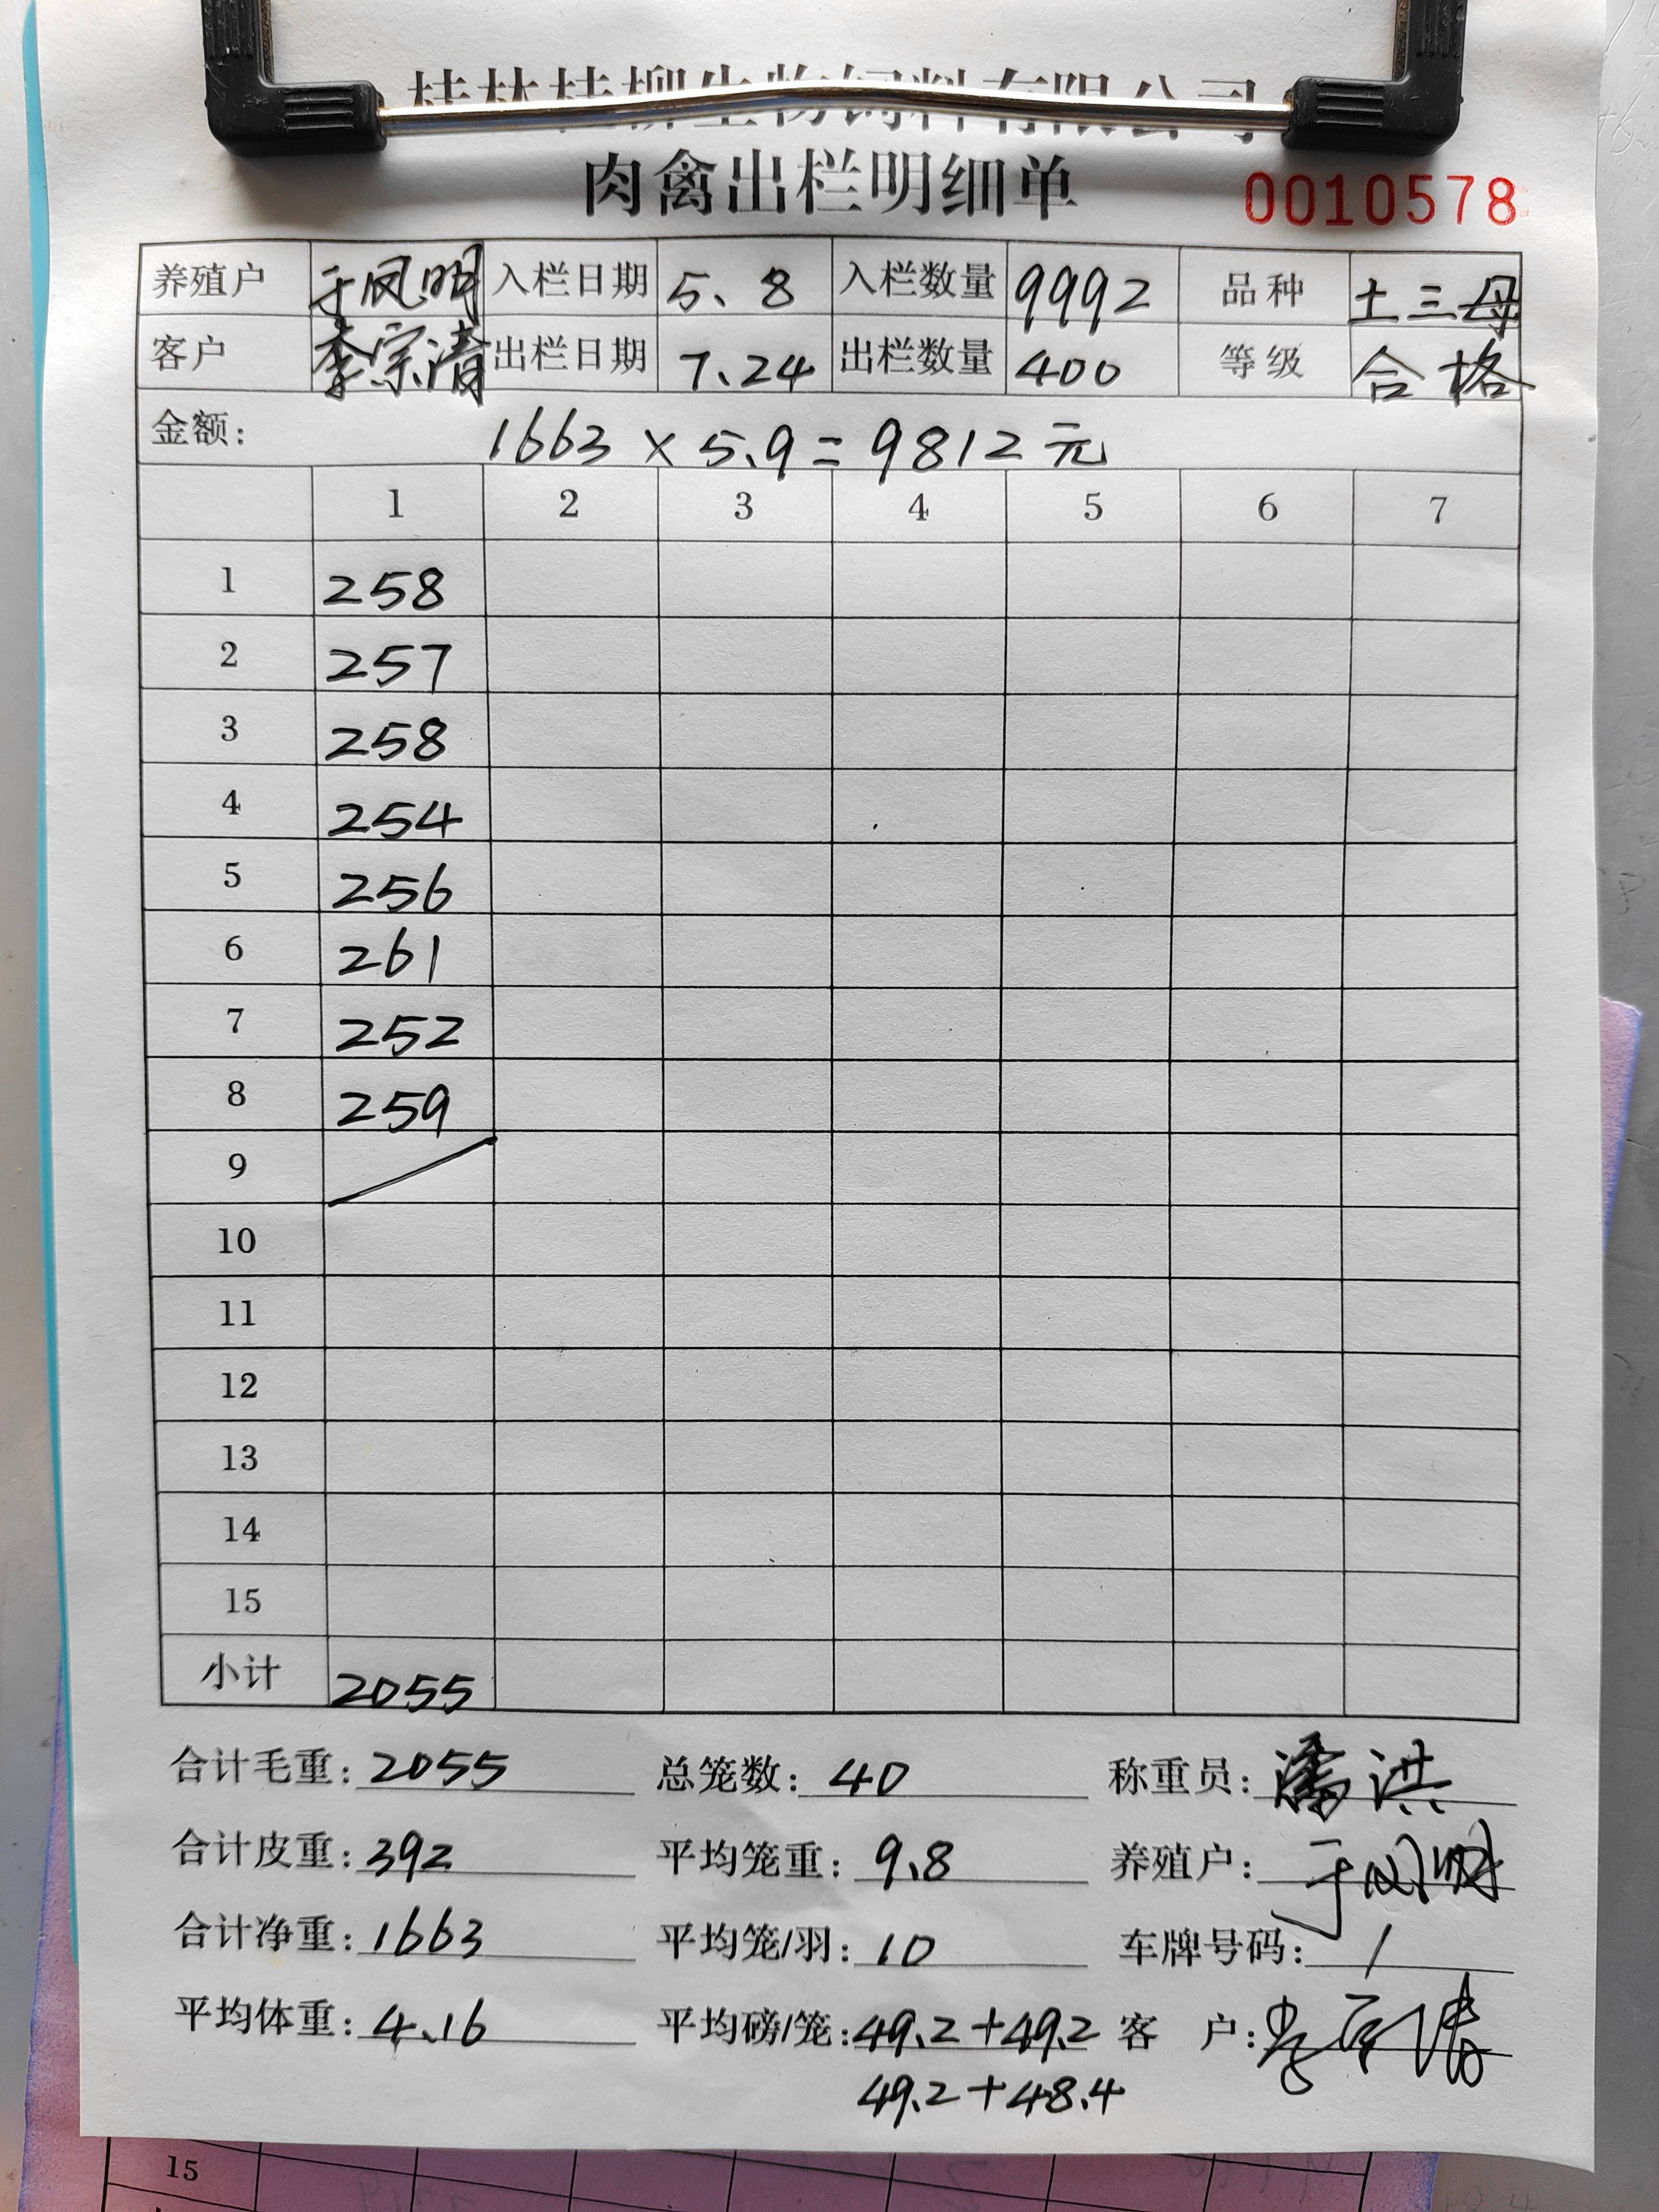 桂林桂柳生物饲料有限公司
肉禽出栏明细单
0010578
养殖户 于凤明 入栏日期 5、8 入栏数量 9992 品种 土三母
客户 李宗清 出栏日期 7.24 出栏数量 400 等级 合格
金额: 1663 × 5.9 = 9812 元
1 2 3 4 5 6 7
1 258
2 257
3 258
4 254
5 256
6 261
7 252
8 259
9
10
11
12
13
14
15
小计 2055
合计毛重: 2055 总笼数: 40 称重员: 潘洪
合计皮重: 392 平均笼重: 9.8 养殖户: 于凤明
合计净重: 1663 平均笼/羽: 10 车牌号码: /
平均体重: 4.16 平均磅/笼: 49.2+49.2 客 户:
49.2+48.4
15